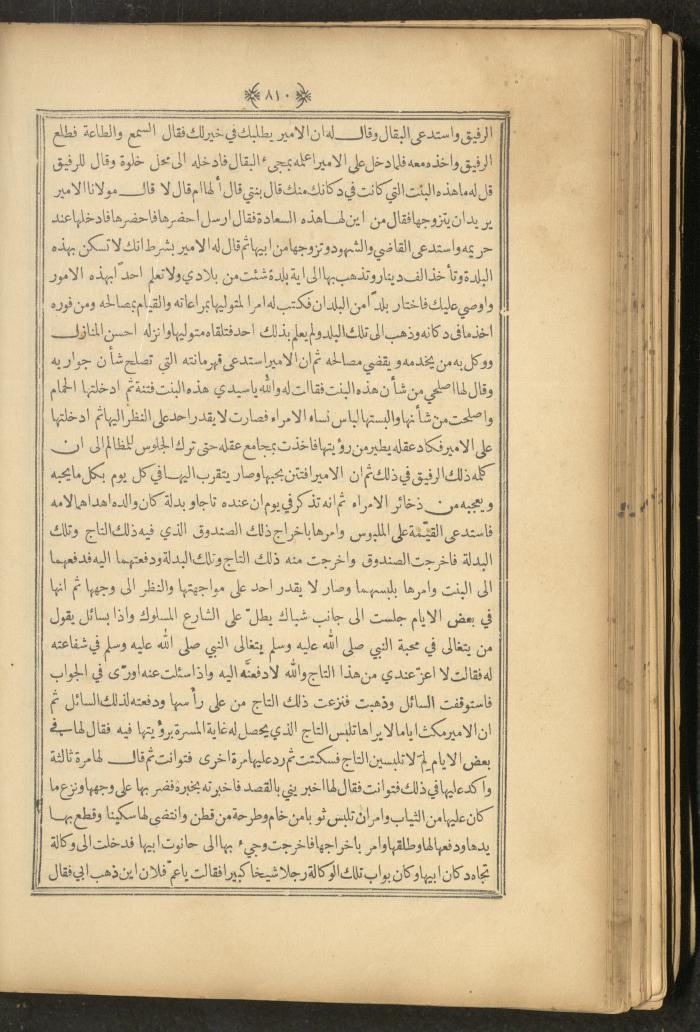 ٨١٠
الرفيق واستدعى البقال وقال له ان الامير يطلبك في خير لك فقال السمع والطاعة فطلع
الرفيق واخذه معه فلما دخل على الامير اعلمه بمجيء البقال فادخله الى محل خلوة وقال للرفيق
قل له ما هذه البنت التي كانت في دكانك منك قال بنتي قال ألها ام قال لا قال مولانا الامير
يريد ان يتزوجها فقال من اين لها هذه السعادة فقال ارسل احضرها فاحضرها فادخلها عند
حريمه واستدعى القاضي والشهود وتزوجها من ابيها ثم قال له الامير بشرط انك لا تسكن بهذه
البلدة وتأخذ الف دينار وتذهب بها الى اية بلدة شئت من بلادي ولا تعلم احداً بهذه الامور
واوصي عليك فاختار بلداً من البلدان فكتب له امرا لمتوليها بمراعاته والقيام بمصالحه ومن فوره
اخذ ما فى دكانه وذهب الى تلك البلد ولم يعلم بذلك احد فتلقاه متوليها وانزله احسن المنازل
ووكل به من يخدمه ويقضي مصالحه ثم ان الامير استدعى قهرمانته التي تصلح شأن جواريه
وقال لها اصلحي من شأن هذه البنت فقالت له والله يا سيدي هذه البنت فتنة ثم ادخلتها الحمام
واصلحت من شأنها والبستها لباس نساء الامراء فصارت لا يقدر احد على النظر اليها ثم ادخلتها
على الامير فكاد عقله يطير من رؤيتها فاخذت بمجامع عقله حتى ترك الجلوس للمظالم الى ان
كلمه ذلك الرفيق في ذلك ثم ان الامير افتتن بحبها وصار يتقرب اليها في كل يوم بكل ما يحبه
ويعجبه من ذخائر الامراء ثم انه تذكر في يوم ان عنده تاجا وبدلة كان والده اهداهما لامه
فاستدعى القيّمة على الملبوس وامرها باخراج ذلك الصندوق الذي فيه ذلك التاج وتلك
البدلة فاخرجت الصندوق واخرجت منه ذلك التاج وتلك البدلة ودفعتهما اليه فدفعهما
الى البنت وامرها بلبسهما وصار لا يقدر احد على مواجهتها والنظر الى وجهها ثم انها
في بعض الايام جلست الى جانب شباك يطلّ على الشارع المسلوك واذا بسائل يقول
من يتغالى في محبة النبي صلى الله عليه وسلم يتغالى النبي صلى الله عليه وسلم في شفاعته
له فقالت لا اعزّ عندي من هذا التاج والله لادفعنّه اليه واذا سئلت عنه اورّى في الجواب
فاستوقفت السائل وذهبت فنزعت ذلك التاج من على رأسها ودفعته لذلك السائل ثم
ان الامير مكث اياما لا يراها تلبس التاج الذي يحصل له غاية المسرة برؤيتها فيه فقال لها في
بعض الايام لِمَ لا تلبسين التاج فسكتت ثم رد عليها مرة اخرى فتوانت ثم قال لها مرة ثالثة
واكد عليها في ذلك فتوانت فقال لها اخبريني بالقصد فاخبرته بخبره فضربها على وجهها ونزع ما
كان عليها من الثياب وامر ان تلبس ثوبا من خام وطرحة من قطن وانتضى لها سكينا وقطع بها
يدها ودفعها لها وطلقها وامر باخراجها فاخرجت وجيء بها الى حانوت ابيها فدخلت الى وكالة
تجاه دكان ابيها وكان بواب تلك الوكالة رجلا شيخا كبيرا فقالت يا عمّ فلان اين ذهب ابي فقال